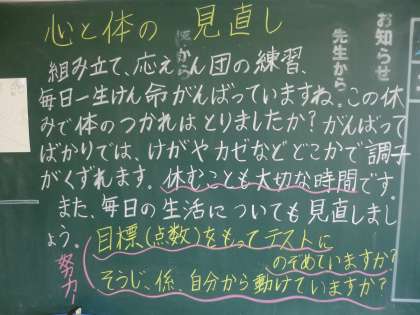 心と体の 見直し
お知らせ
先生から
組み立て、応えん団の練習、
毎日一生けん命がんばっていますね。この休
みで体のつかれはとりましたか？がんばって
ばかりでは、けがやカゼなどどこかで調子
がくずれます。休むことも大切な時間です。
また、毎日の生活についても見直しまし
ょう。目標(点数)をもってテストに
のぞめていますか？
そうじ、係、自分から動けていますか？
努力！